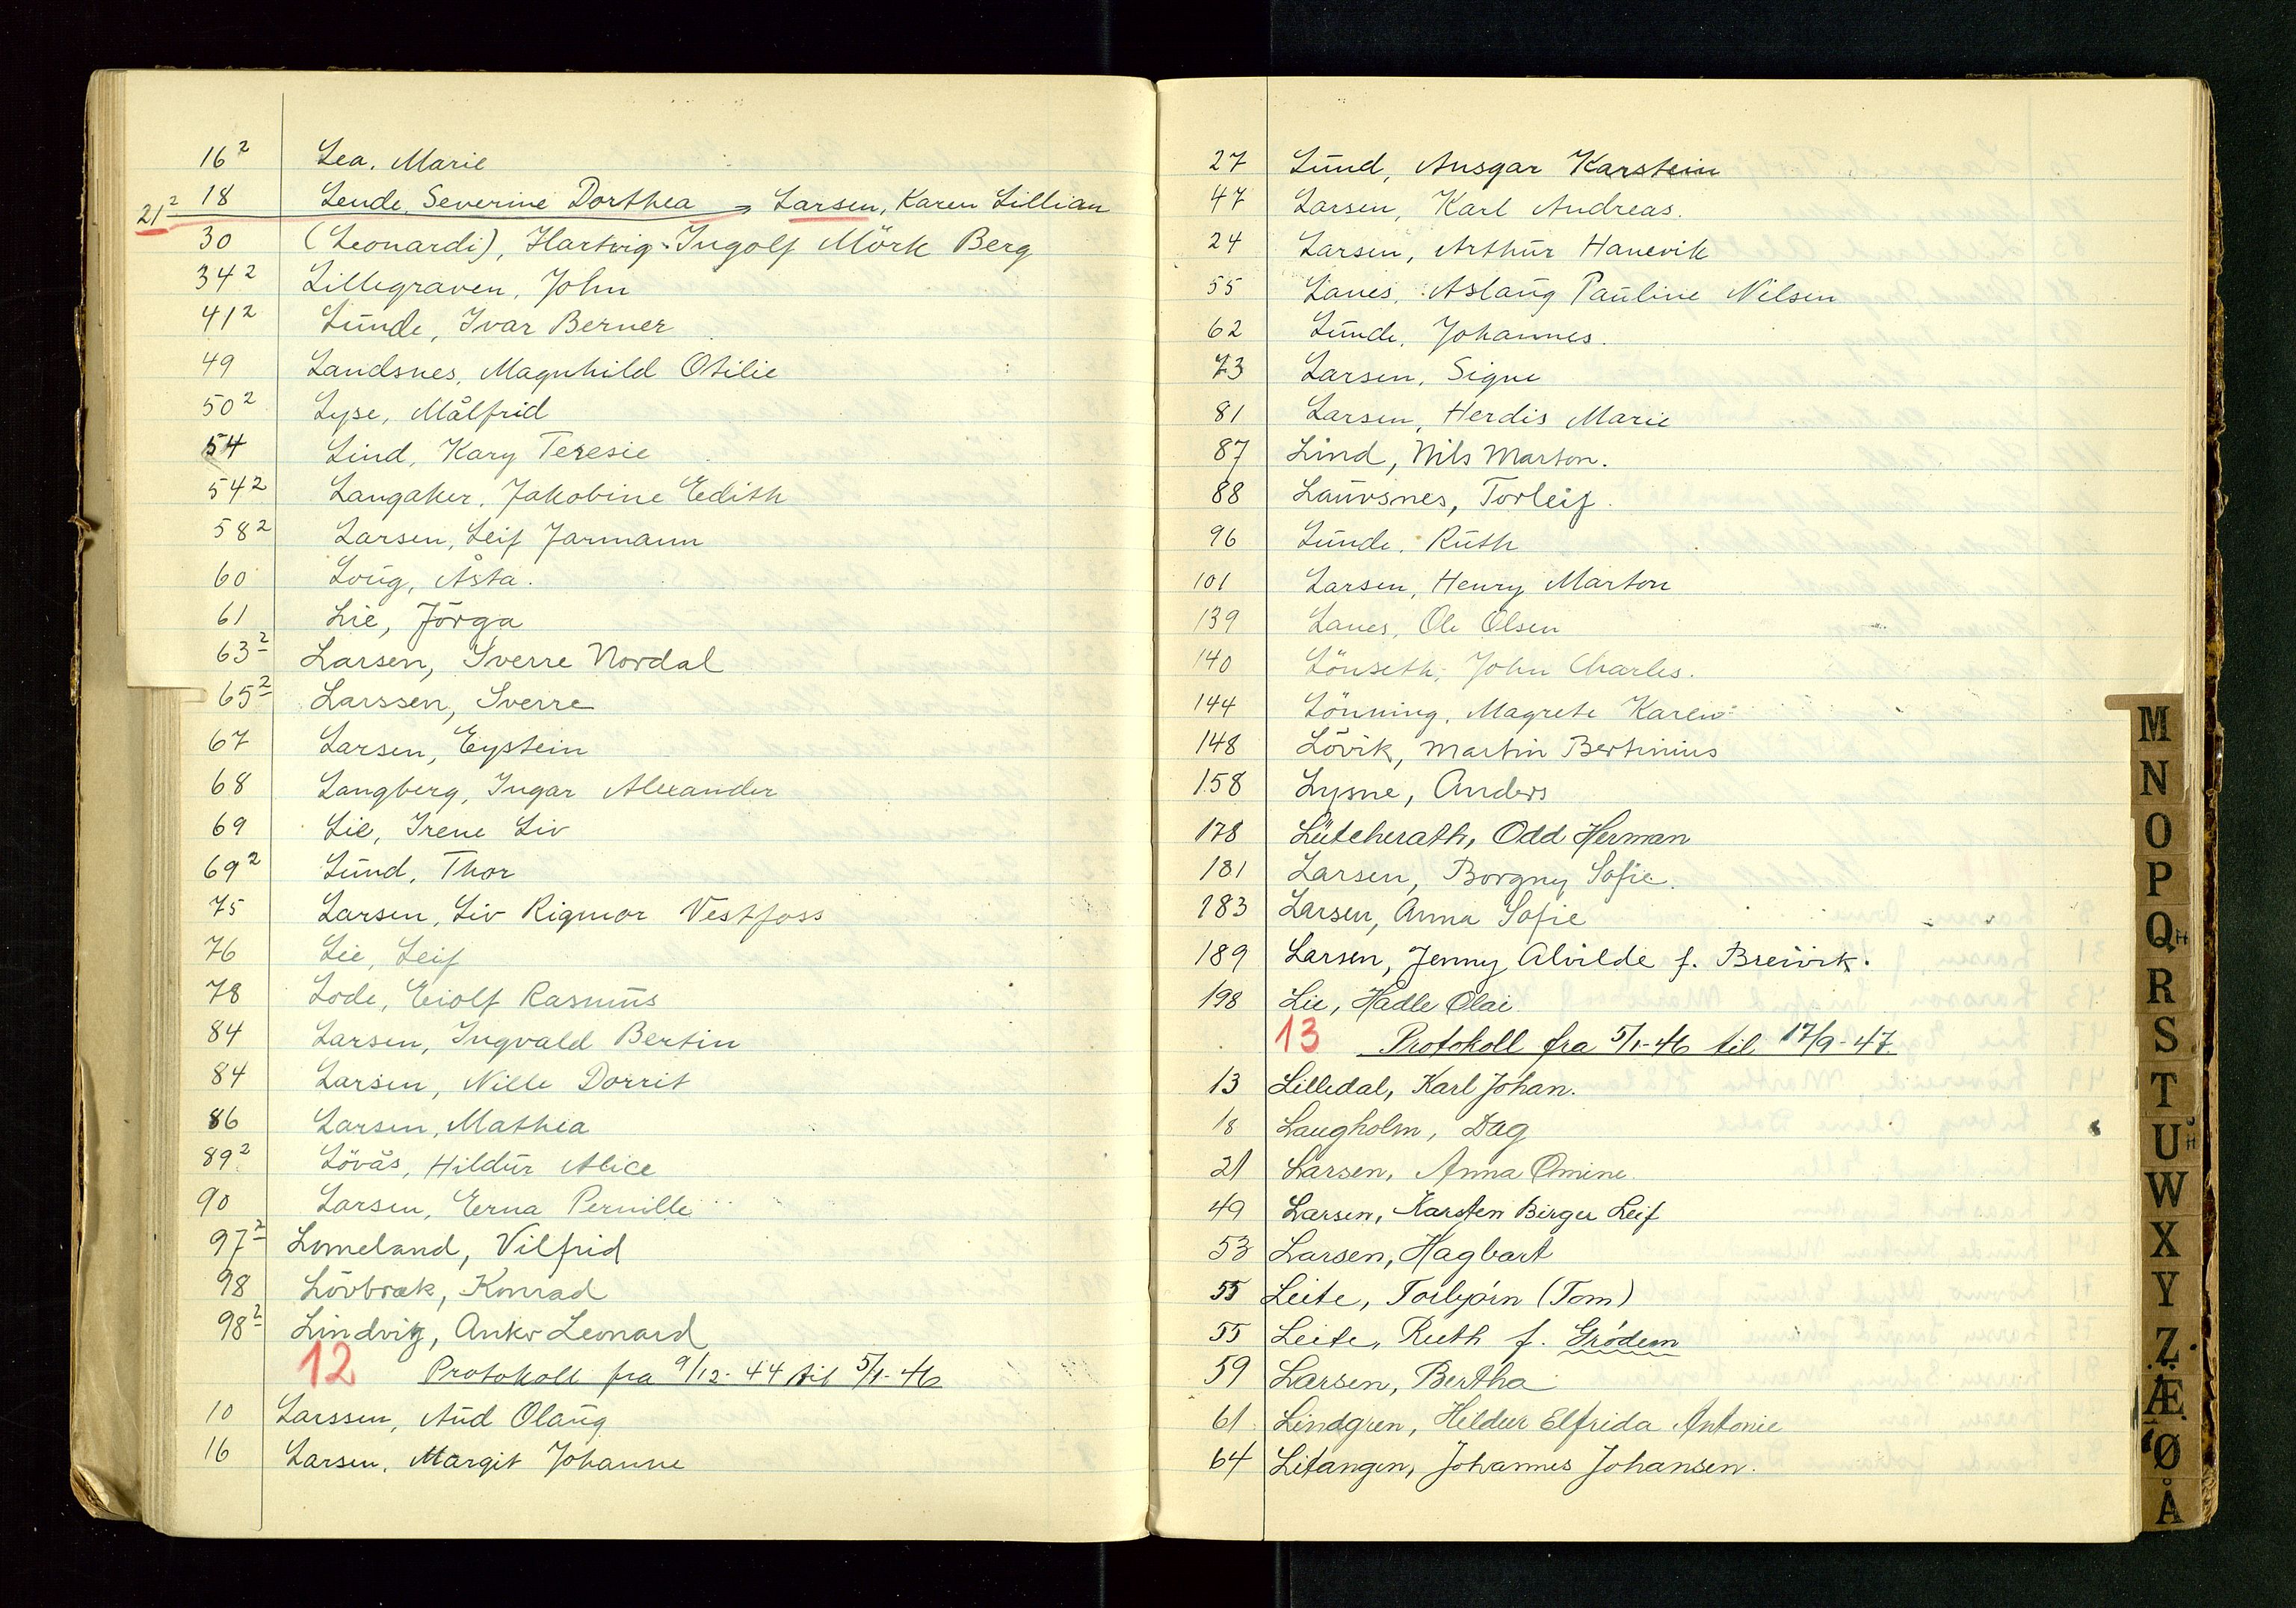 16² Lea, Marie
18 Lende, Severine Dorthea
21² Larsen, Karen Lillian
30 (Leonardi), Hartvig Ingolf Mörk Berg
34² Lillegraven, John
41² Lunde, Ivar Berner
49 Landsnes, Magnhild Otilie
50² Lyse, Målfrid
54 Lind, Kary Teresie
54² Langaker, Jakobine Edith
58² Larsen, Leif Jarmann
60 Loug, Åsta.
61 Lie, Jörga
63² Larsen, Sverre Nordal
65² Larssen, Sverre
67 Larsen, Eystein
68 Langberg, Ingar Alexander
69 Lie, Irene Liv
69² Lund, Thor
75 Larsen, Liv Rigmor Vestfoss
76 Lie, Leif
78 Lode, Eiolf Rasmus
84 Larsen, Ingvald Bertin
84 Larsen, Nille Dorrit
86 Larsen, Mathea
89² Lövås, Hildur Alice
90 Larsen, Erna Pernille
97² Lomeland, Vilfrid
98 Lövbrak, Konrad
98² Lindvig, Anker Leonard
12 Protokoll fra 9/12-44 til 5/1-46
10 Larssen, Aud Olaug
16 Larsen, Margit Johanne
27 Lund, Ansgar Karstein
47 Larsen, Karl Andreas.
24 Larsen, Arthur Hanevik
55 Lanes, Aslaug Pauline Nilsen
62 Lunde, Johannes.
73 Larsen, Signe
81 Larsen, Herdis Marie
87 Lind, Nils Marton.
88 Laursnes, Torleif.
96 Lunde, Ruth
101 Larsen, Henry Marton
139 Lanes, Ole Olsen
140 Lönseth, John Charles.
144 Lönning, Magrete Karen
148 Lövik, Martin Bertinius
158 Lysne, Anders
178 Lütcherath, Odd Herman
181 Larsen, Borgny Sofie.
183 Larsen, Anna Sofie
189 Larsen, Jenny Alvilde f. Breivik.
198 Lie, Hadle Olai
13 Protokoll fra 5/1-46 til 17/9-47.
13 Lilledal, Karl Johan.
18 Laugholm, Dag
21 Larsen, Anna Omine.
49 Larsen, Karsten Birger Leif
53 Larsen, Hagbart
55 Leite, Torbjørn (Tom)
55 Leite, Ruth f. Grødem
59 Larsen, Bertha
61 Lindgren, Hildur Elfrida Antonie
64 Litangen, Johannes Johansen.
M
N
O
P
Q
R
S
T
U
W
X
Y
Z
Æ
Ø
Å